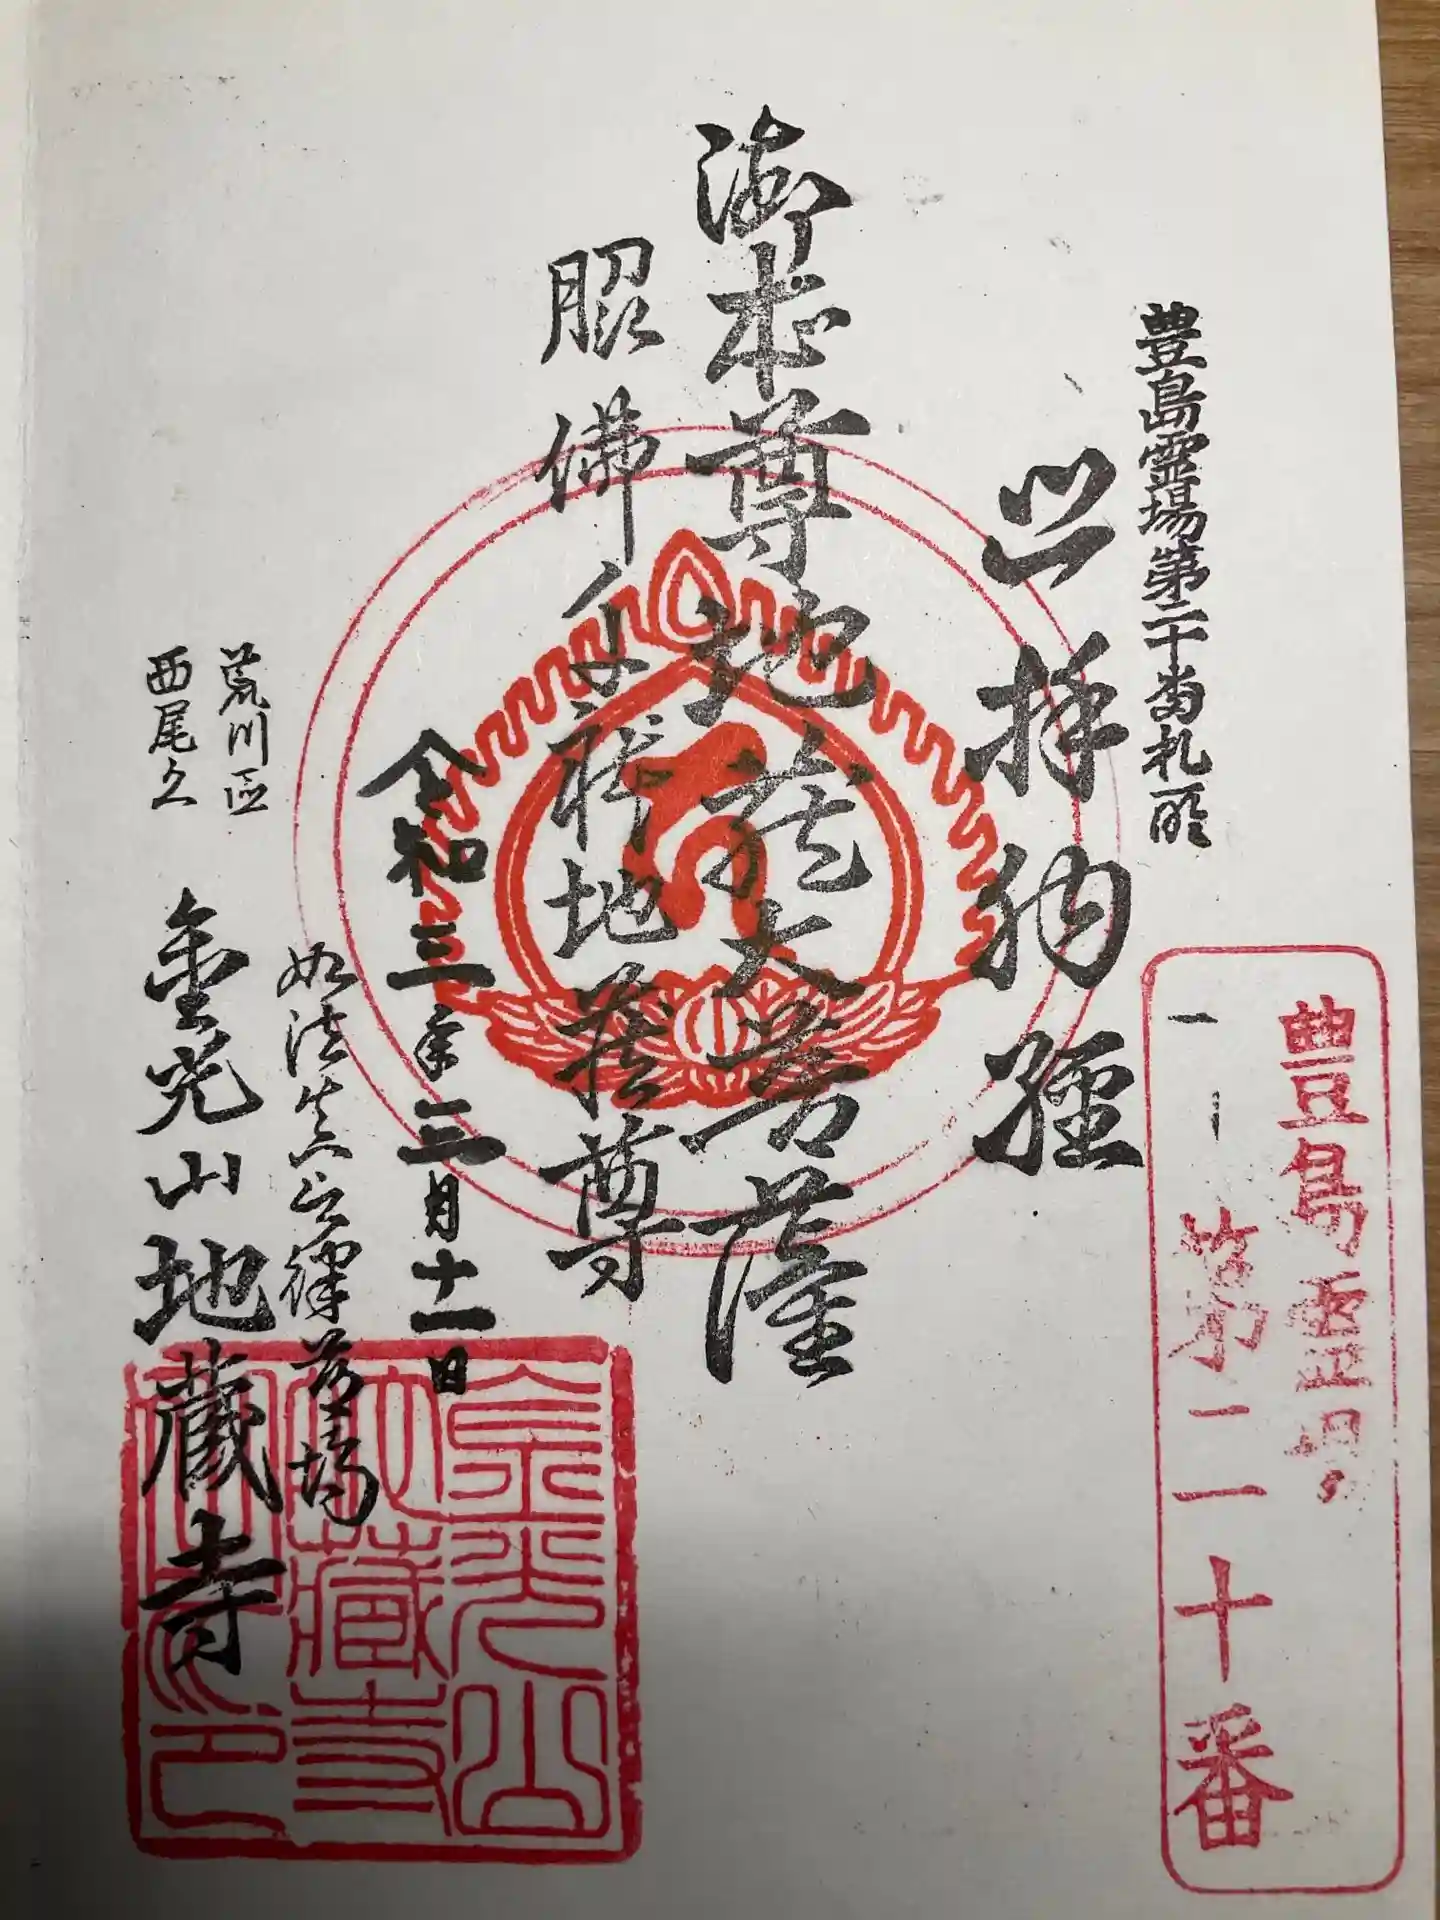 豊島霊場第二十番札所
豊島霊場
第二十番
奉拝納経
御本尊地蔵大菩薩
令和三年三月十一日
荒川区
西尾久
金光山地蔵寺
金光山
地蔵寺